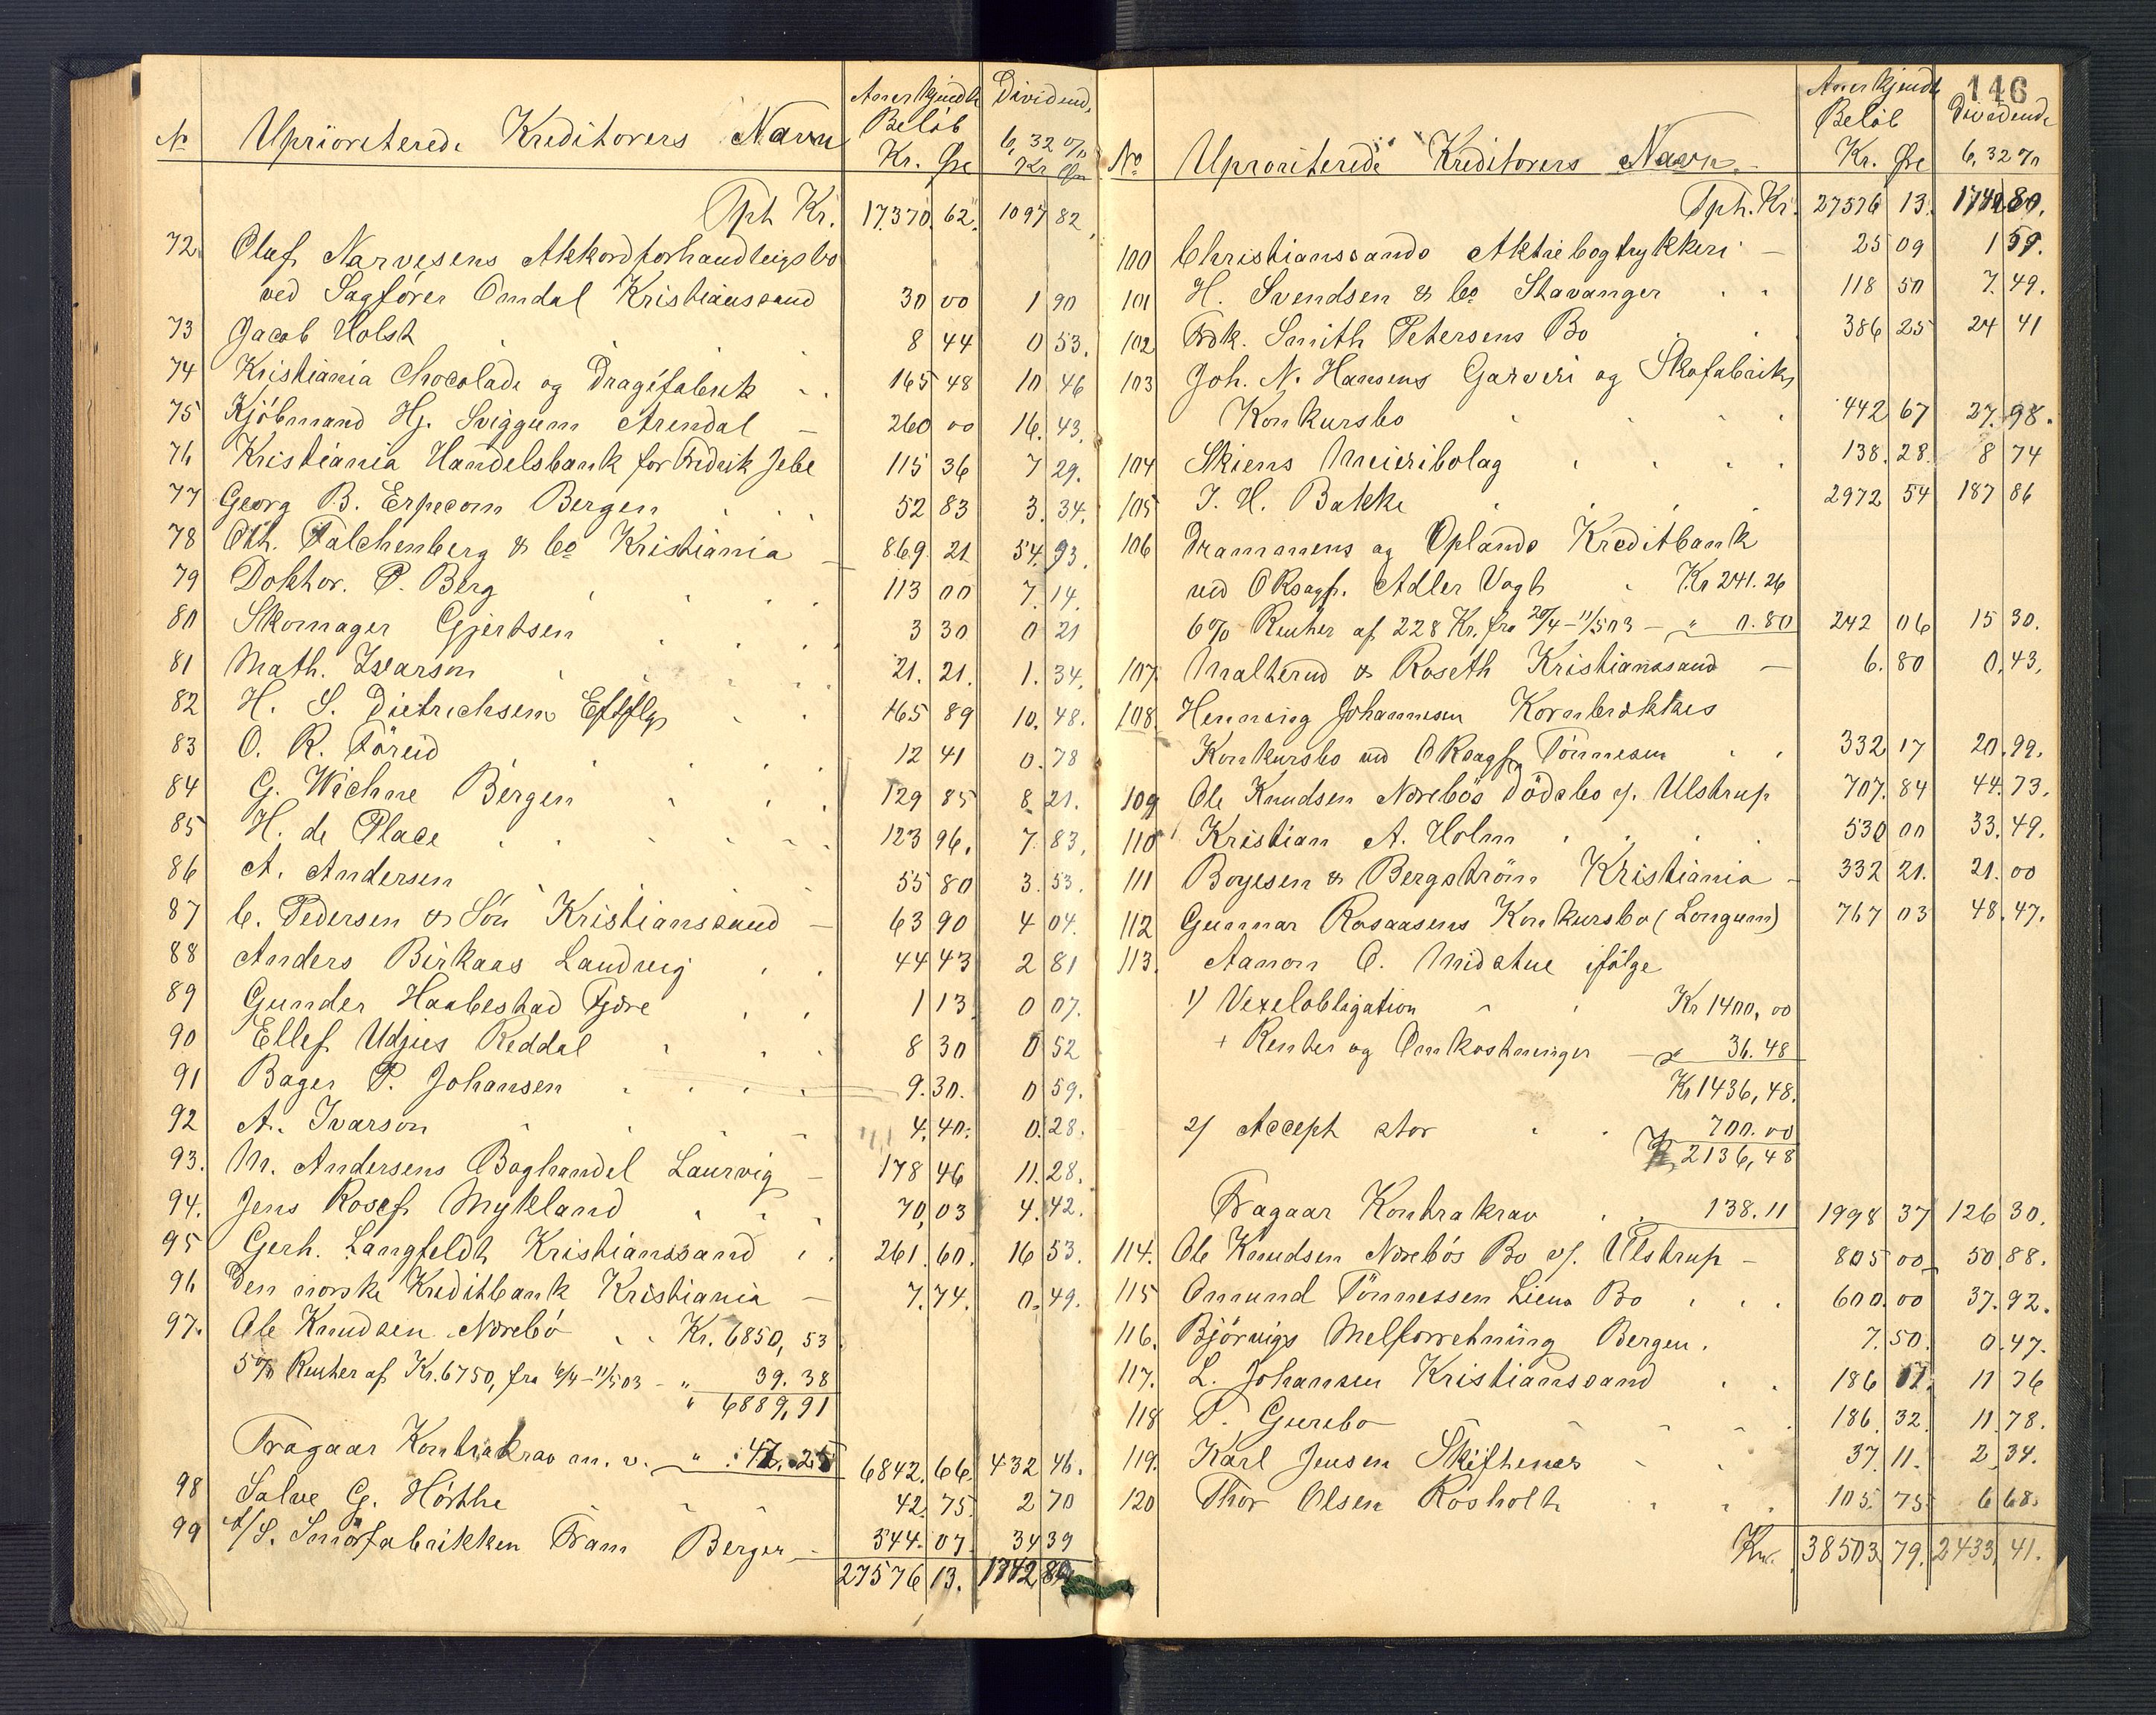 No Uprioriterede Kreditorers Navn Anerkjendte Beløb Kr. Øre Dividende 6,32 % Kr Øre
Tph Kr. 17370. 62. 1097 82
72. Oluf Narvesens Akkordforhandlingsbo
ved Sagfører Omdal Kristianssand 30 00 1 90
73 Jacob Holst 8 44 0 53.
74 Kristiania Chocolade og Dragéfabrik 165 48 10. 46
75 Kjöbmand Hj. Sviggum Arendal 260 00 16. 43.
76 Kristiania Handelsbank for Fredrik Jebe 115 36 7 29.
77 Georg B. Erpecom Bergen 52 83 3. 34.
78 Oth. Falchenberg & Co Kristiania 869. 21 54. 93.
79 Doktor. P. Berg 113 00 7. 14.
80 Skomager Gjertsen 3 30 0 21
81 Math. Ivarson 21. 21. 1. 34.
82 H. S. Dietrichsens Eftflgr 165 89 10. 48.
83 O. R. Töreid 12 41 0. 78
84 G. Wichne Bergen 129 85 8 21.
85 H. de Place 123 96. 7 83.
86 A. Andersen 55 80 3. 53.
87 C. Pedersen & Sön Kristianssand 63 90 4 04.
88 Anders Birkaas Landvig 44 43 2 81
89 Gunder Haabestad Fjære 1 13 0 07.
90 Ellef Udjus Reddal 8 30 0 52
91 Bager P. Johansen 9. 30. 0 59.
92 A. Ivarson 4. 40. 0. 28.
93. M. Andersens Boghandel Laurvig 178 46 11. 28.
94. Jens Rosef Mykland 70, 03 4. 42.
95 Gerh. Langfeldt Kristianssand 261. 60. 16 53.
96 Den norske Kreditbank Kristiania 7. 74. 0. 49.
97. Ole Knudsen Norebö Kr. 6850, 53
5% Renter af Kr. 6750, fra 6/4 - 11/503 - " 39. 38
" 6889, 91
Fragaar Kontrakrav m. v. " 47. 25 6842. 66. 432 46.
98 Salve G. Hörthe 42. 75. 2 70
99 A/S. Smörfabrikken Fram Bergen 544. 07. 34 39
27576 13. 1742 80
146
No Uprioriterede Kreditorers Navn Anerkjendte Beløb Kr. Øre Dividende 6,32 %
Tph. Kr. 27576 13. 1742 80.
100 Christianssands Aktiebogtrykkeri 25 09 1 59.
101 H. Svendsen & Co Stavanger 118 50 7. 49.
102 Fdk. Smith Petersens Bo 386 25 24 41
103 Joh. N. Hansens Garveri og Skofabriks
Konkursbo 442 67 27. 98.
104 Skiens Meieribolag 138. 28. 8 74
105 J. H. Bakke 2972 54 187 86
106 Drammens og Oplands Kreditbank
ved ORsagf. Adler Vogt Kr 241. 26
6% Renter af 228 Kr. fra 20/4 - 11/503 - " 0. 80 242 06 15 30.
107 Malterud & Roseth Kristianssand 6. 80 0, 43.
108. Henning Johannesen Kornbrækkes
Konkursbo ved ORsagf. Tönnesen 332 17 20. 99.
109 Ole Knudsen Norebös Dödsbo v/. Ulstrup 707. 84 44. 73.
110 Kristian A. Holm 530 00 33. 49.
111 Boyesen & Bergström Kristiania 332 21. 21. 00
112 Gunnar Rosaasens Konkursbo (Longum) 767 03 48. 47.
113. Aanon O. Midstue ifølge
1) Vexelobligation Kr 1400, 00
+ Renter og Omkostninger " 36. 48
Kr 1436, 48.
2) Accept stor 700. 00
Kr 2136, 48
Fragaar Kontrakrav 138. 11 1998 37 126 30.
114. Ole Knudsen Norebös Bo v/. Ulstrup 805 00 50. 88.
115 Omund Tönnessen Liens Bo 600. 00 37. 92.
116. Björvigs Melforretning Bergen. 7. 50. 0. 47.
117. L. Johansen Kristianssand 186 07. 11 76
118 P. Gurebo 186. 32. 11. 78.
119. Karl Jensen Skiftenes 37. 11. 2. 34.
120 Thor Olsen Rosholt 105. 75. 6 68.
Kr. 38503 79. 2433 41.